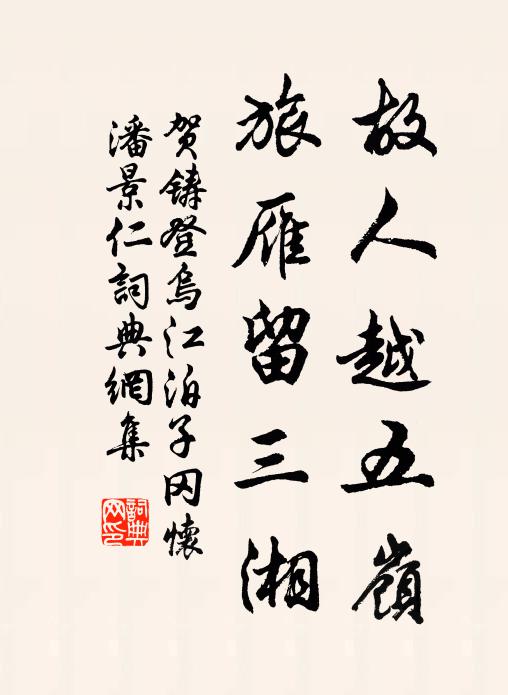 故人越五嶺
旅雁留三湘
贺鑄登烏江泊子冈懷
潘景仁詞典網集
詞典网印